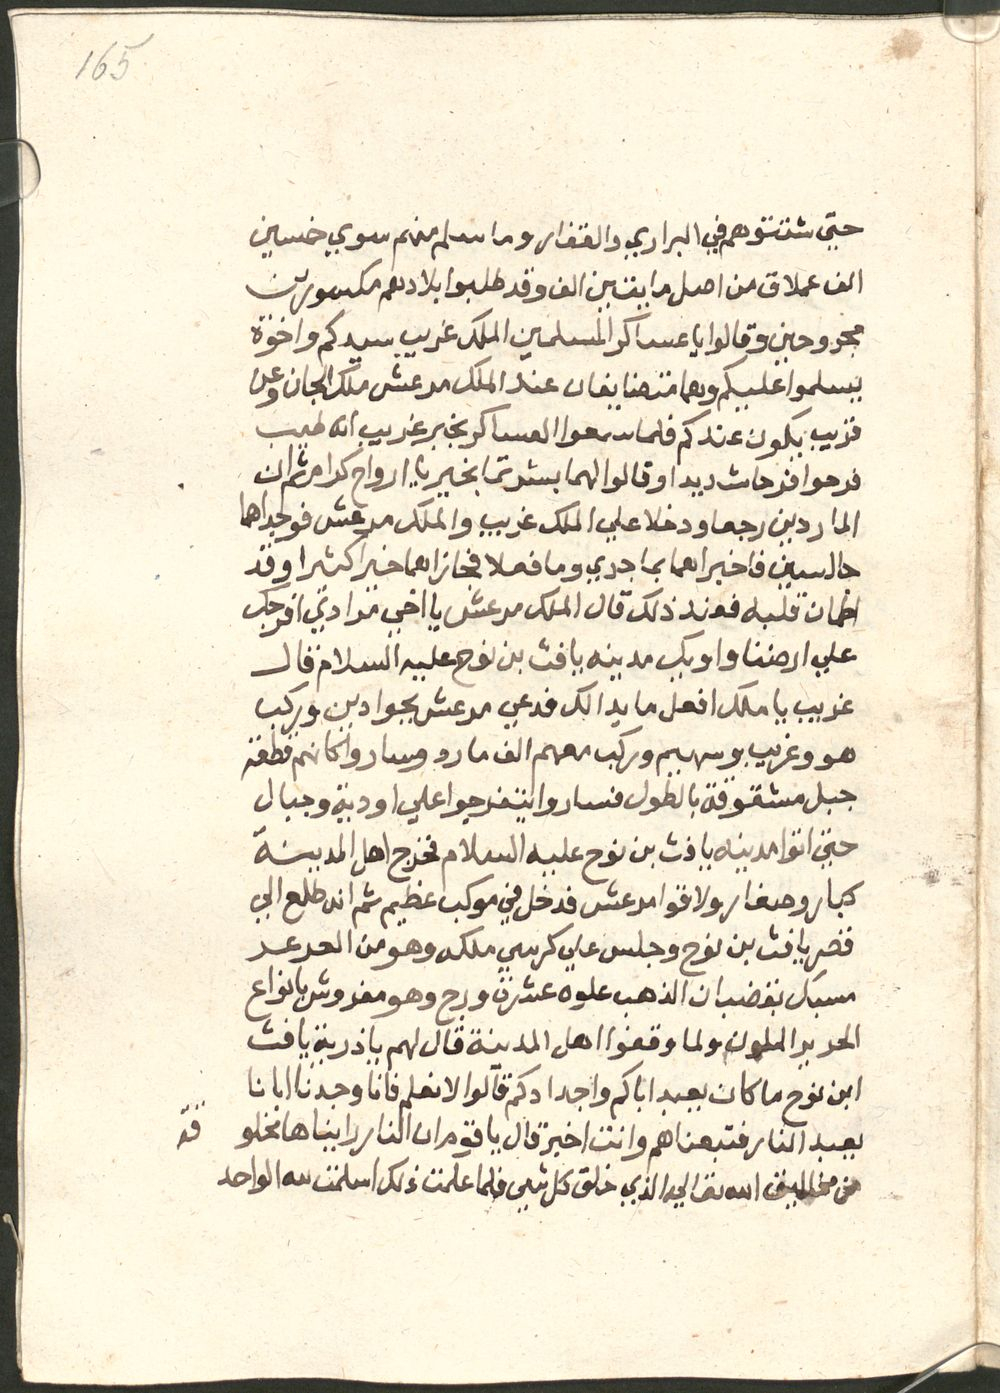 165
حتي شتتوهم في البراري والقفار وما سلم منهم سوي خمسين
الف عملاق من اصل مايتين الف وقد طلبوا بلادهم مكسورين
مجروحين وقالوا يا عساكر المسلمين الملك غريب سيدكم واخوة
يسلموا عليكم وهما متضايفان عند الملك مرعش ملك الجان وعن
قريب يكون عندكم فلما سمعوا العساكر بخبر غريب انه طيب
فرحوا فرحا شديدا وقالوا لهما بشرتما بخير يا ارواح كرام ثم ان
الماردين رجعا ودخلا علي الملك غريب والملك مرعش فوجداهما
جالسين فاخبراهما بما جري وما فعلا فجازاهما خيرا كثيرا وقد
اطمان قلبه فعند ذلك قال الملك مرعش يا اخي مرادي افرجك
علي ارضنا واوريك مدينه يافث بن نوح عليه السلام قال
غريب يا ملك افعل ما بدا لك فدعي مرعش بجوادين وركب
هو وغريب وسهيم وركب معهم الف مارد وساروا كانهم قطعة
جبل مشقوقة بالطول فساروا يتفرجوا علي اودية وجبال
حتي اتوا مدينه يافث بن نوح عليه السلام فخرج اهل المدينة
كبار وصغار ولاقوا مرعش فدخل في موكب عظيم ثم انه طلع الي
قصر يافث بن نوح وجلس علي كرسي ملكه وهو من المرمر
مسبك بقضبان الذهب علوه عشرة درج وهو مفروش بانواع
الحرير الملون ولما وقفوا اهل المدينة قال لهم يا ذرية يافث
ابن نوح ما كان يعبد اباكم واجدادكم قالوا لا نعلم فانا وجدنا ابانا
يعبد النار فتبعناهم وانت اخبر قال يا قوم ان النار رايناها مخلوقة
من مخاليق الله تعالي الذي خلق كل شي فلما علمت ذلك اسلمت لله الواحد